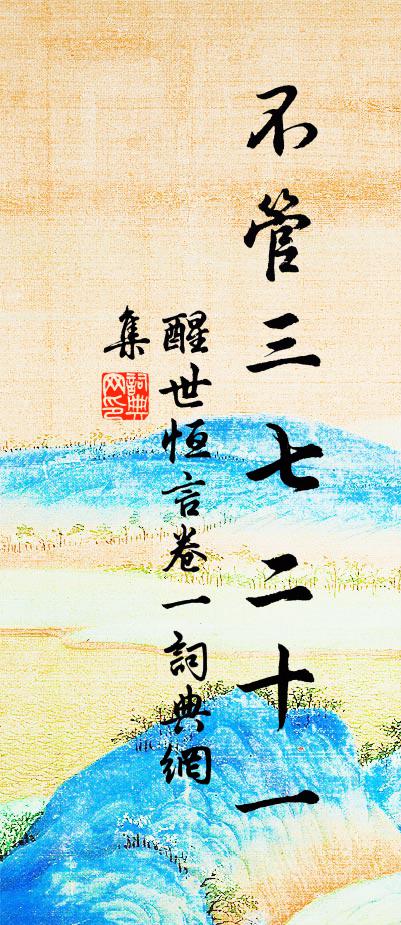 不管三七二十一
醒世恒言卷一詞典網
集
詞典
网印